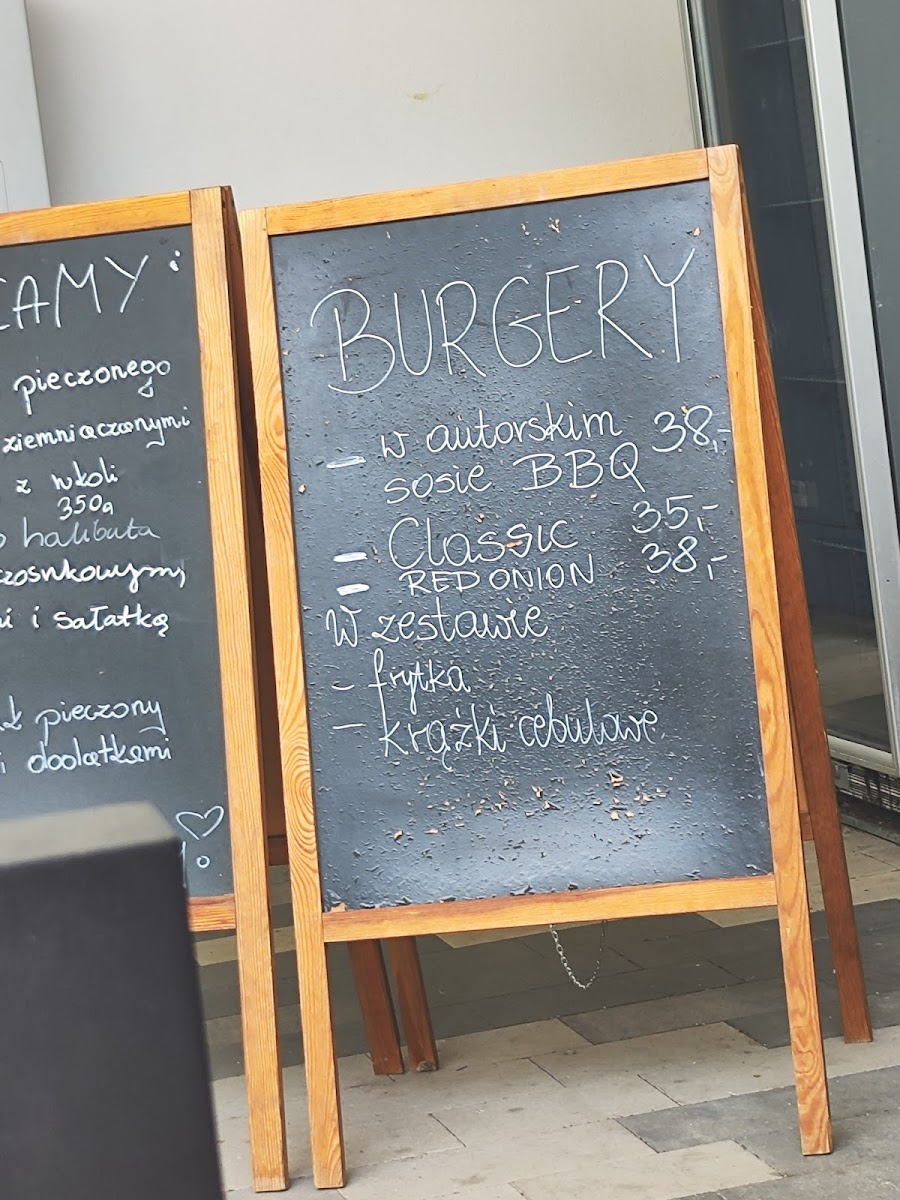 pieczonego
ziemniaczanymi
z wkoli
350g
halibuta
i sałatką
pieczony
i dodatkami
BURGERY
- w autorskim 38,-
sosie BBQ
- Classic 35,-
- RED ONION 38,-
W zestawie
- frytka
- krążki cebulowe